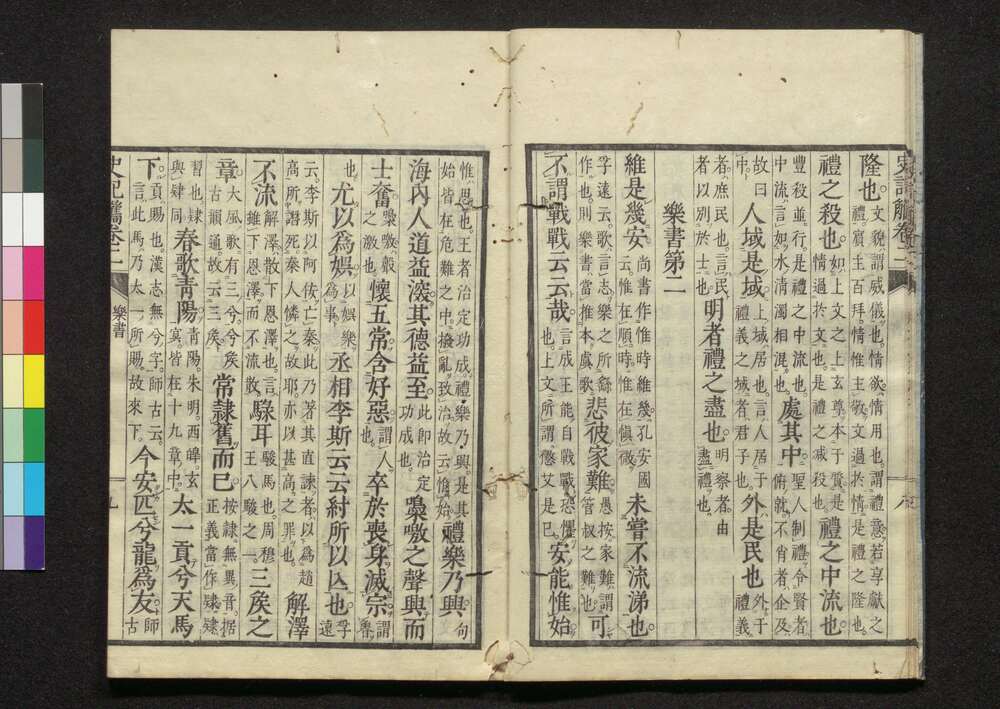 史記觿卷二
隆也文貌謂威儀也情欲情用也謂禮意若享獻之禮賓主百拜情惟主敬文過於情是禮之隆也
禮之殺也如上文之上玄尊本于質是情過於文也是禮之減殺也禮之中流也
豐殺並行是禮之中流也中流言如水清濁相混也處其中聖人制禮令賢者俯就不肖者企及
故曰中人域是域上域居也言人居于禮義之域者君子也外是民也外于禮義
者庶民也言民者以別於士也明者禮之盡也明察者由盡禮也
樂書第二
維是幾安尚書作惟時維幾孔安國云惟在順時惟在慎微未嘗不流涕也
孚遠云歌言志樂之所繇作也則樂書當推本虞歌悲彼家難愚按家難謂管叔之難也可
不謂戰戰云云哉言成王能自戰戰恐懼也上文所謂懲艾是已安能惟始
惟思也王者治定功成禮樂乃興是其始皆在危難之中撥亂致治故云惟始禮樂乃興句
海內人道益深其德益至此即治定功成也嘄噭之聲興而
士奮嘄噭殺之激也懷五常含好惡謂人也卒於喪身滅宗謂魯
也尤以爲娛以娛樂爲事丞相李斯云云紂所以亡也孚遠
云李斯以阿佞亡秦此乃著其直諫者以爲趙高所譖死秦人憐之故耶亦以甚高之罪也解澤
不流解澤散下恩澤也言雖下恩澤而不流散騄耳駿馬也周穆王八駿之一三矦之
章大風歌有三兮兮矦古韻通故云三矦常隷舊而已按隷無異音據正義當作肄肄
習也隷與肄同春歌靑陽靑陽朱明西皞玄冥皆在十九章中太一貢兮天馬
下貢賜也漢志無兮字師古云言此馬乃太一所賜故來下今安匹兮龍爲友師古
史記觿卷二
樂書
九